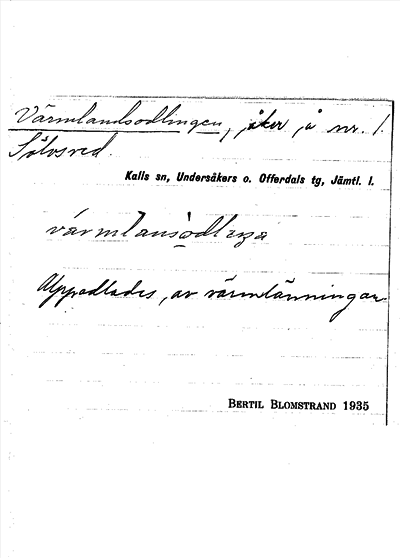 Värmlandsodlingen, åker å nr. 1.
Sölvsved.
Kalls sn, Undersåkers o. Offerdals tg, Jämtl. l.
Uppodlades, av värmlänningar
BERTIL BLOMSTRAND 1935